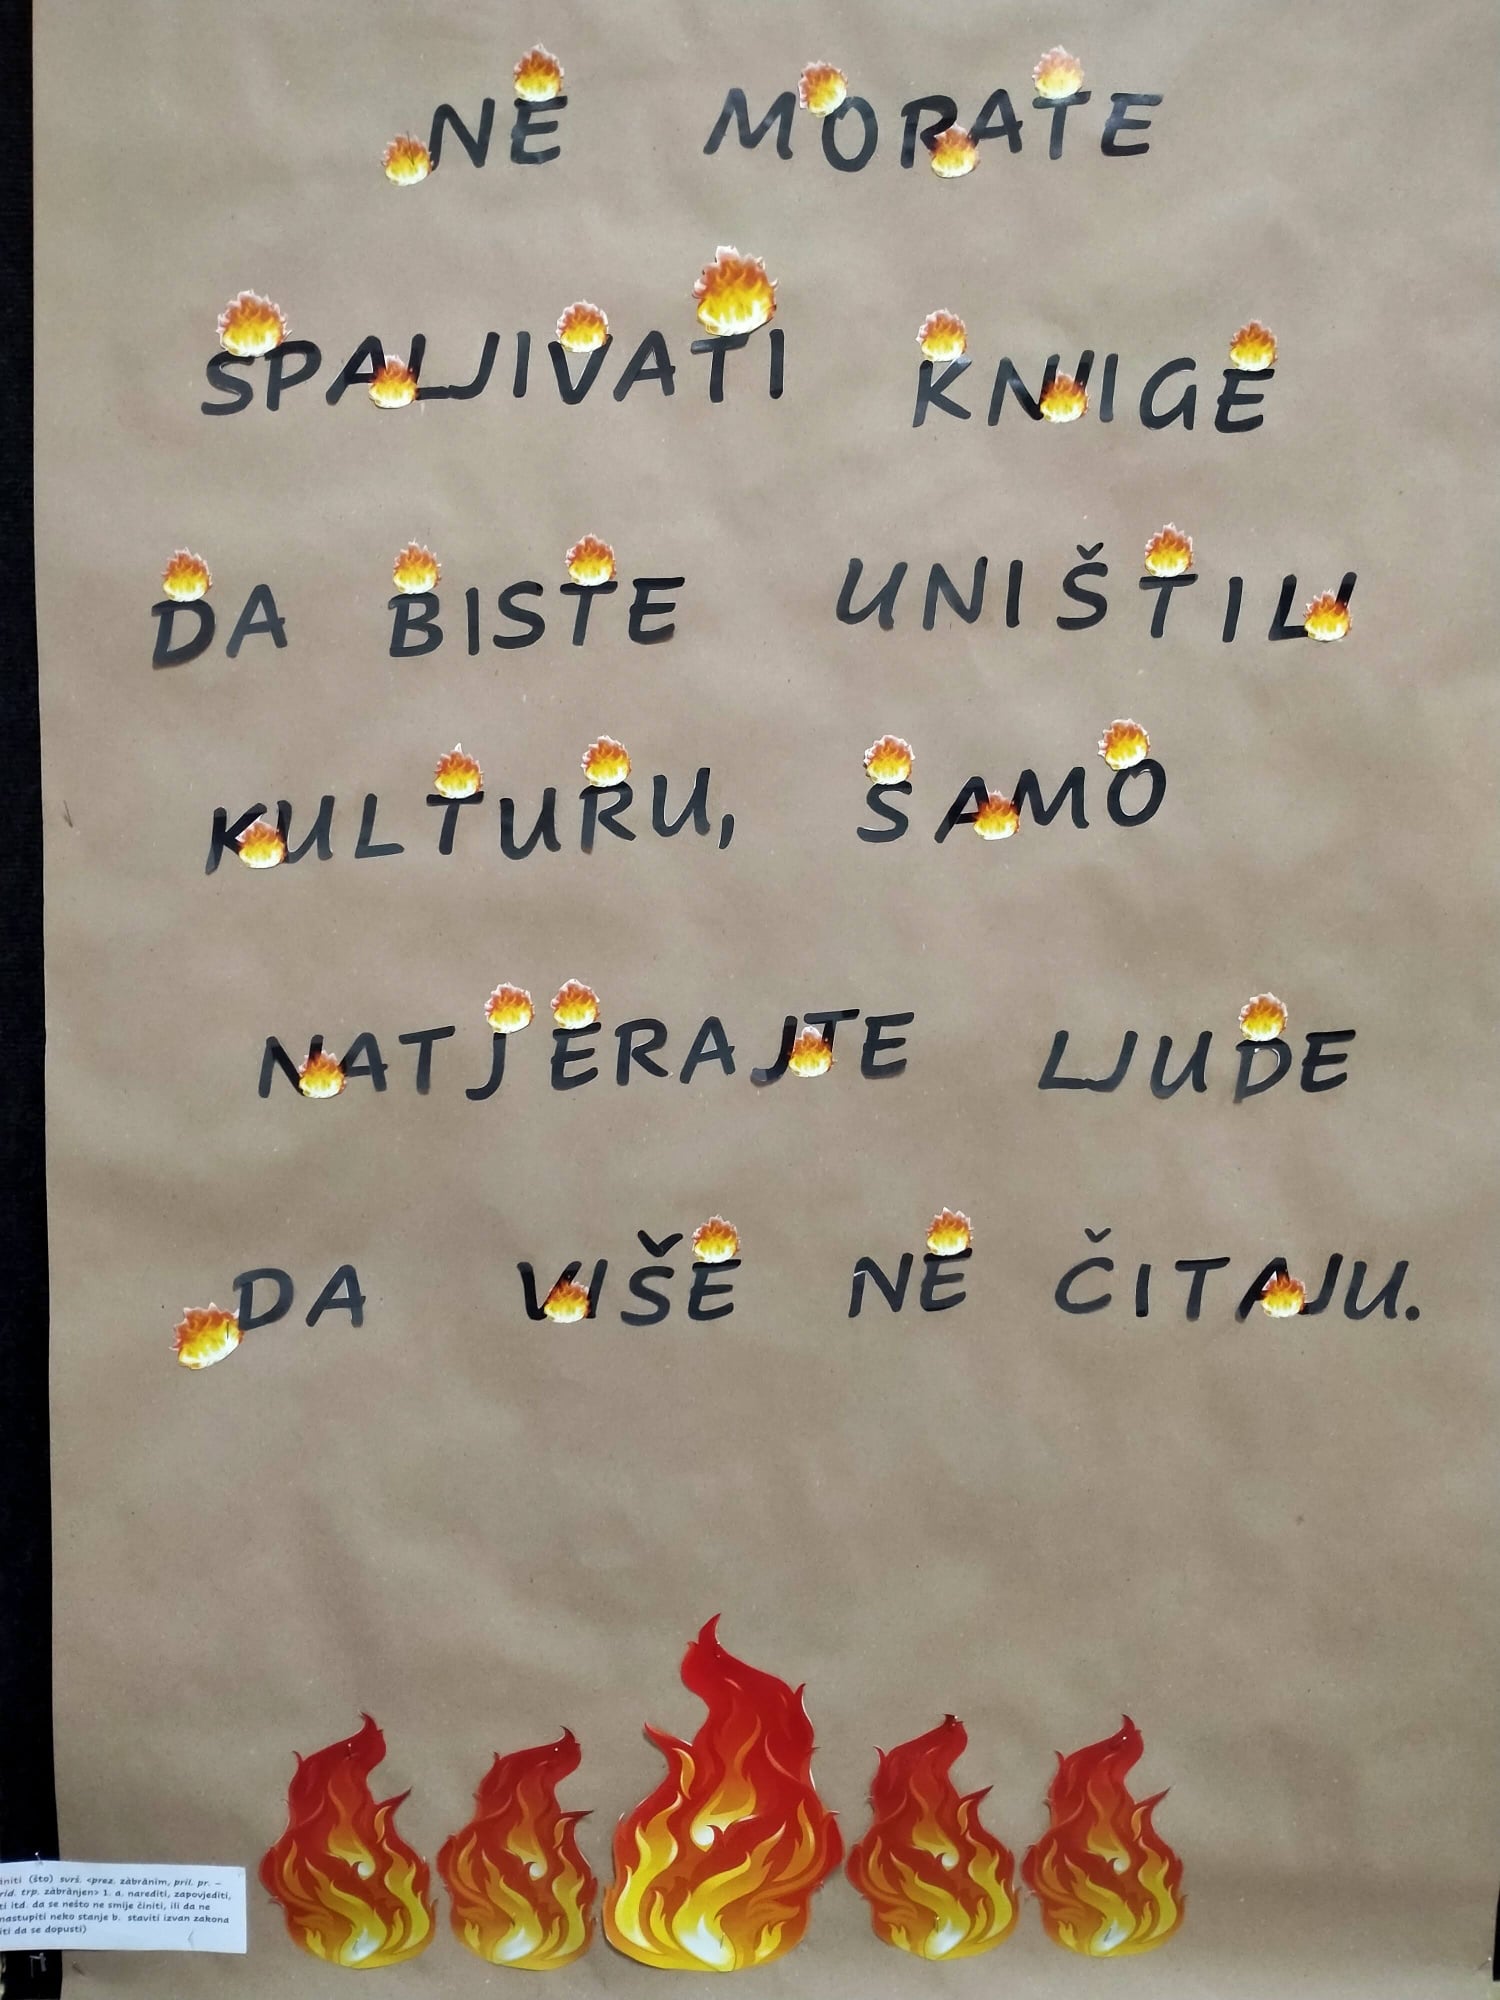 NE MORATE
SPALJIVATI KNJIGE
DA BISTE UNIŠTILI
KULTURU, SAMO
NATJERAJTE LJUDE
DA VIŠE NE ČITAJU.
(što) svrš. <prez. zàbrānīm, pril. pr. –
trp. zàbrānjen> 1. a. narediti, zapovjediti,
itd. da se nešto ne smije činiti, ili da ne
nastupiti neko stanje b. staviti izvan zakona
da se dopusti)